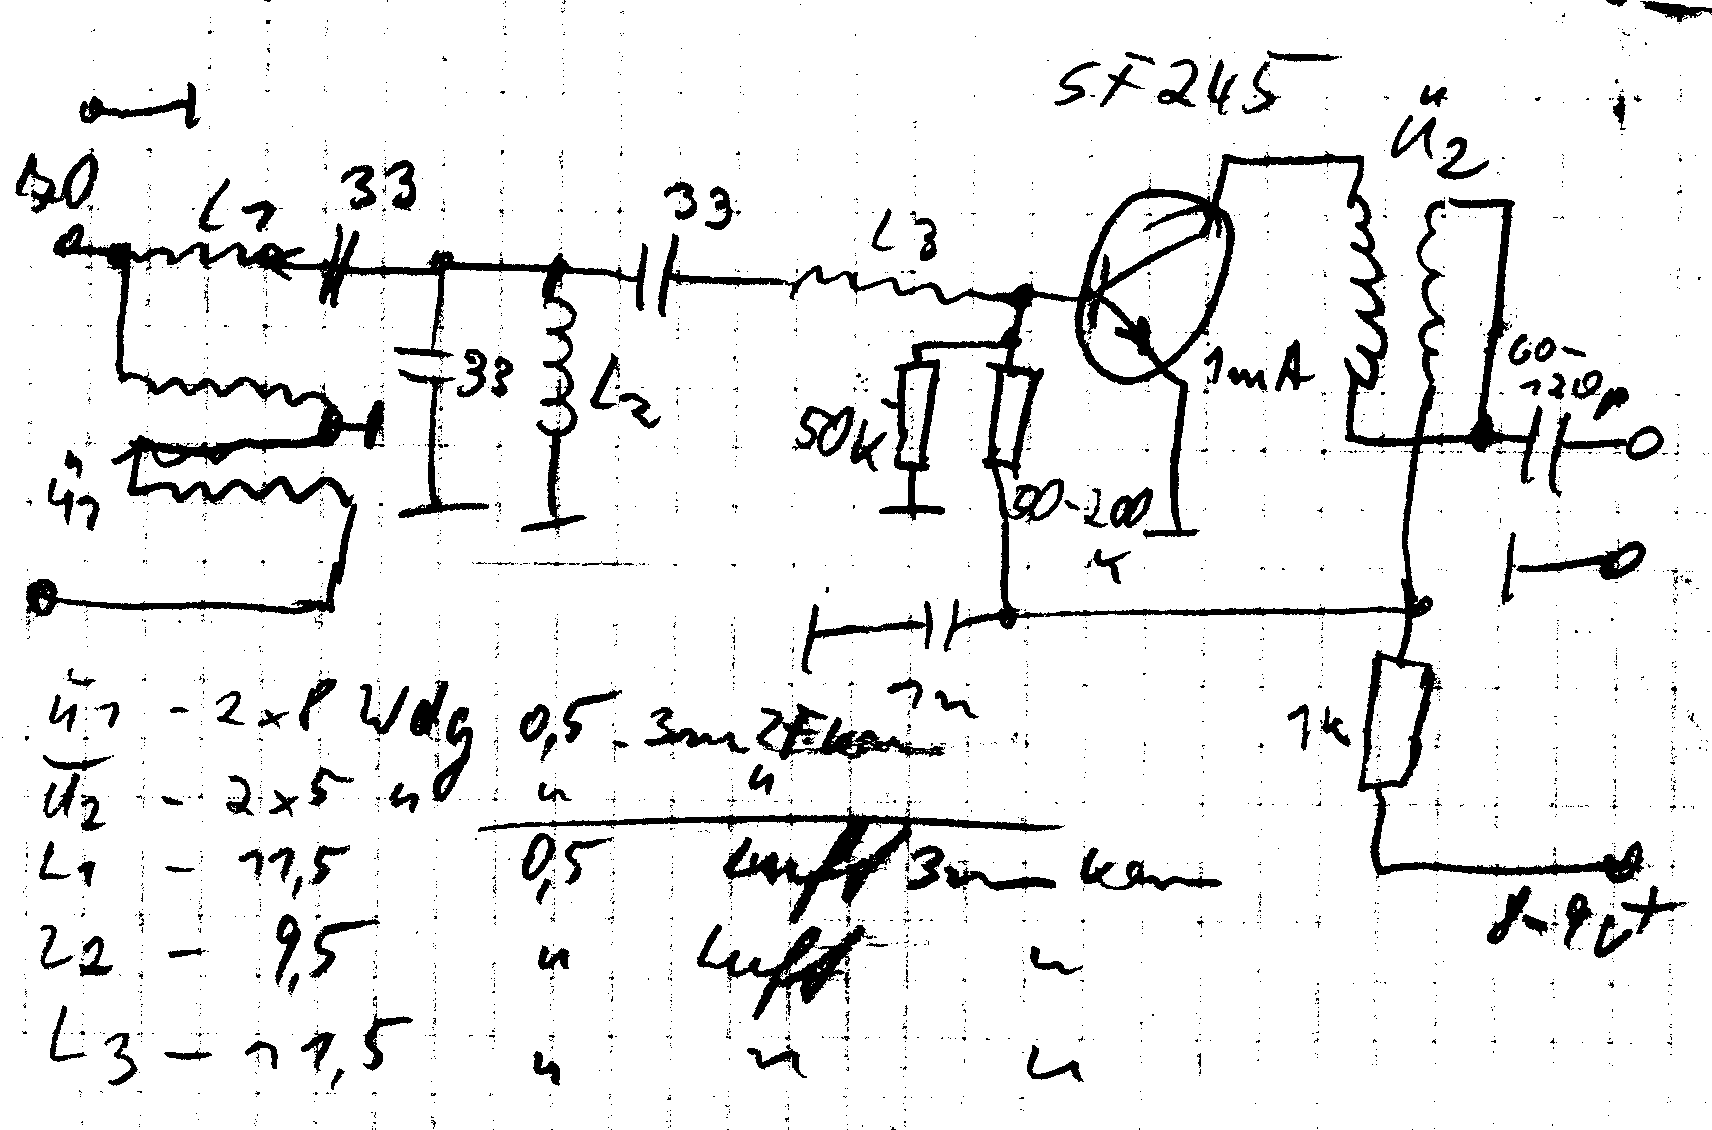 SF245
Ü2
60
L1
33
33
L3
33
L2
50k
1mA
60-
120p
Ü1
50-200
k
1n
1k
8-9V+
Ü1 - 2x8 Wdg 0,5 - 3mm
Ü2 - 2x5 " " "
L1 - 11,5 0,5 Luft 3mm
L2 - 9,5 " Luft "
L3 - 11,5 " " "